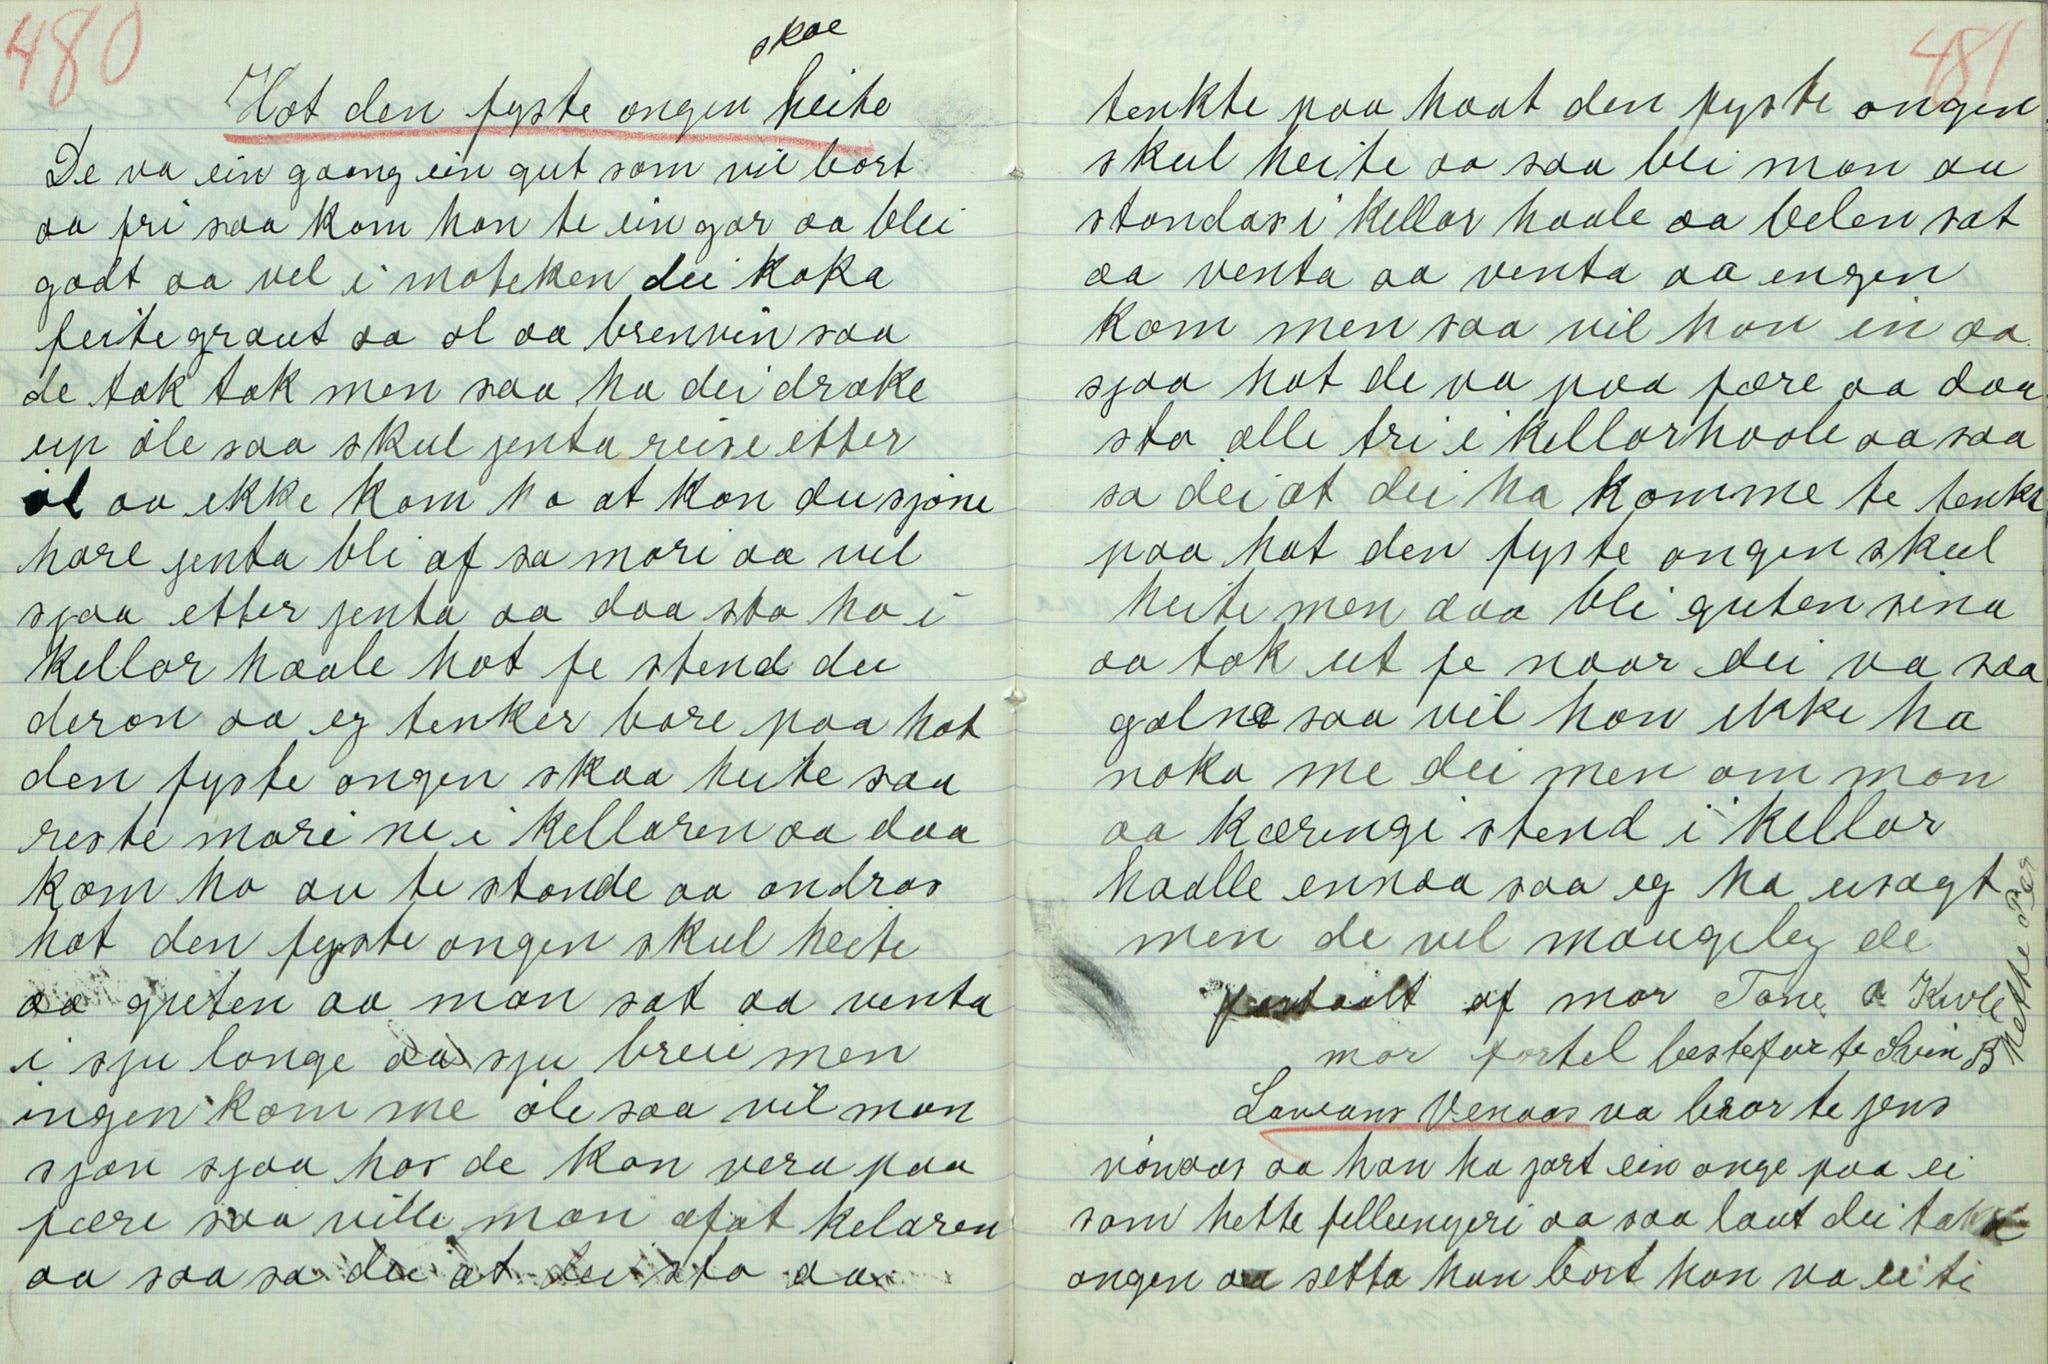 480
skae
Hot den fyste ongen heite
De va ein gaang ein gut som vil bort
aa fri saa kom han te ein gar aa blei
godt aa vel i moteken dei koka
feitegraut aa ol aa brenvin saa
de tok tok men saa ha dei droke
up öle saa skul jenta reise etter
öl aa ikke kom ho at kon du sjöne
hore jenta bli af sa mori aa vil
sjaa etter jenta aa daa sto ho i
kellar haale hot fe stend du
deron aa eg tenker bare paa hot
den fyste ongen skaa heite saa
reste mori ne i kellaren aa daa
kom ho au te stande aa ondras
hot den fyste ongen skul heite
aa guten aa man sat aa venta
i sju longe aa sju breie men
ingen kom me öle saa vil man
sjøn sjaa hos de kan vera paa
fære saa ville man afat kelaren
aa saa sa dei at dei sto aa
481
tenkte paa haat den fyste ongen
skul heite aa saa bli man au
standas i kellar haale aa belen sat
aa venta aa venta aa engen
kom men saa vil han in aa
sjaa hot de va paa fære aa daa
sto alle tri i kellarhaale aa saa
sa dei at dei ha komme te tenke
paa hot den fyste ongen skul
heite men daa bli guten sina
aa tok ut fe naar dei va saa
galne saa vil han ikke ha
noko me dei men om man
aa kæringi stend i kellar
haalle ennaa saa eg ha usagt
men de vel mougeleg de
fortaalt af mor Tone a Kivle
mor fortel bestefar te Svein B
hette Per
Laurans Venaas va bror te jens
vönaas aa han ha jort ein onge paa ei
som hette felleungeri aa saa laut dei take
ongen aa setta han bort han va ei ti